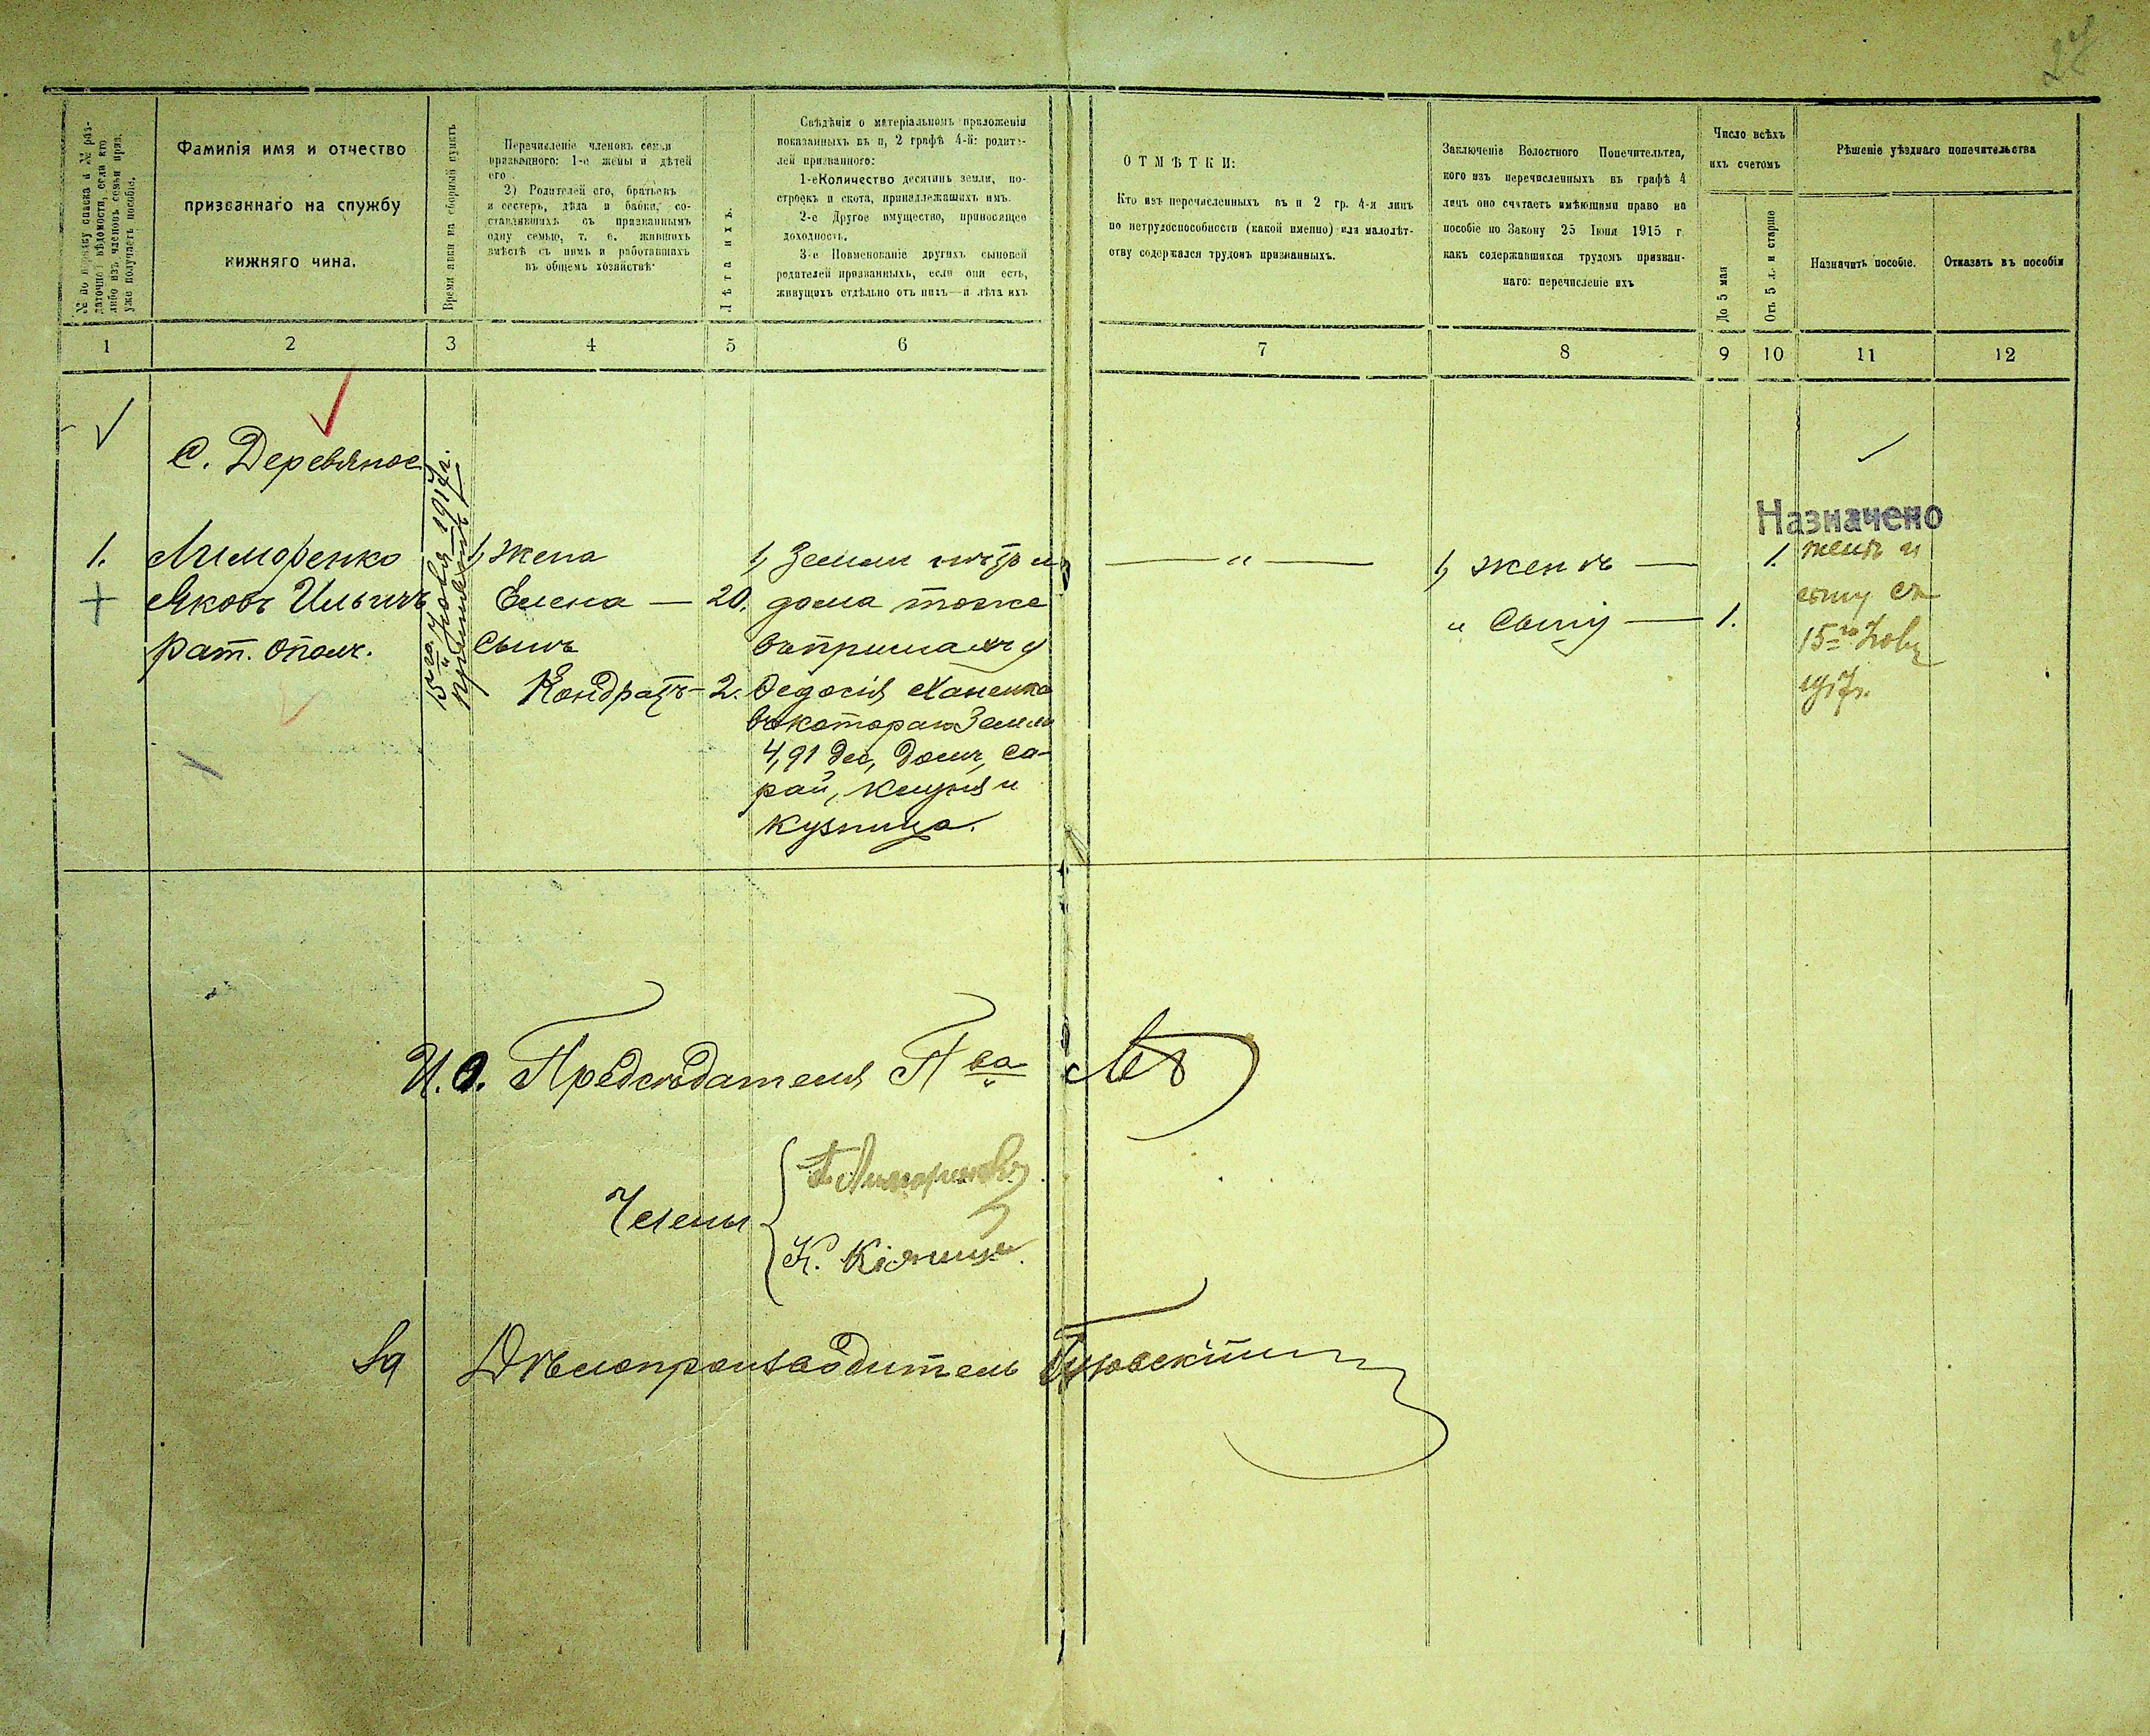 27
№ по порядку списка и № раз-
даточной вѣдомости, если кто
либо изъ членовъ семьи приз.
уже получаетъ пособіе.
Фамилія имя и отчество
призваннаго на службу
нижняго чина.
Время явки на сборный пунктъ
Перечисленіе членовъ семьи
призваннаго: 1-е жены и дѣтей
его
2) Родителей его, братьевъ
и сестеръ, дѣда и бабки, со-
ставлявшихъ съ призваннымъ
одну семью, т. е. жившихъ
вмѣстѣ съ нимъ и работавшихъ
въ общемъ хозяйствѣ
Лѣта ихъ.
Свѣдѣнія о матеріальномъ приложеніи
показанныхъ въ п, 2 графѣ 4-й: родите-
лей призваннаго:
1-е Количество десятинъ земли, по-
строекъ и скота, принадлежащихъ имъ.
2-е Другое имущество, приносящее
доходность.
3-е Поименованіе другихъ сыновей
родителей призванныхъ, если они есть,
живущихъ отдѣльно отъ нихъ—и лѣта ихъ
ОТМѢТКИ:
Кто изъ перечисленныхъ въ п 2 гр. 4-я лицъ
по нетрудоспособности (какой именно) или малолѣт-
ству содержался трудомъ призванныхъ.
Заключеніе Волостного Попечительтва,
кого изъ перечисленныхъ въ графѣ 4
лицъ оно считаетъ имѣющими право на
пособіе по Закону 25 Іюня 1915 г
какъ содержавшихся трудомъ призван-
наго: перечисленіе ихъ
Число всѣхъ
ихъ счетомъ
До 5 мая
Отъ 5 л. и старше
Рѣшеніе уѣзднаго попечительства
Назначить пособіе.
Отказать въ пособіи
1 2 3 4 5 6 7 8 9 10 11 12
С. Деревяное
1. Лиморенко
Яковъ Ильичъ
рат. ополч.
15го 1917 г.
1, Жена
Елена — 20.
Сынъ
Кондратъ — 2.
1, Земли нѣтъ и
дома тоже
Федосія
въ которой Земли
4,91 дес, домъ, са-
рай, клуня и
кузница.
— " —
1, женѣ — 1.
" Сыну — 1.
Назначено
женѣ и
сыну съ
15го
1917г.
И.О. Предсѣдателя П-ва
Члены
К.
За Дѣлопроизводитель